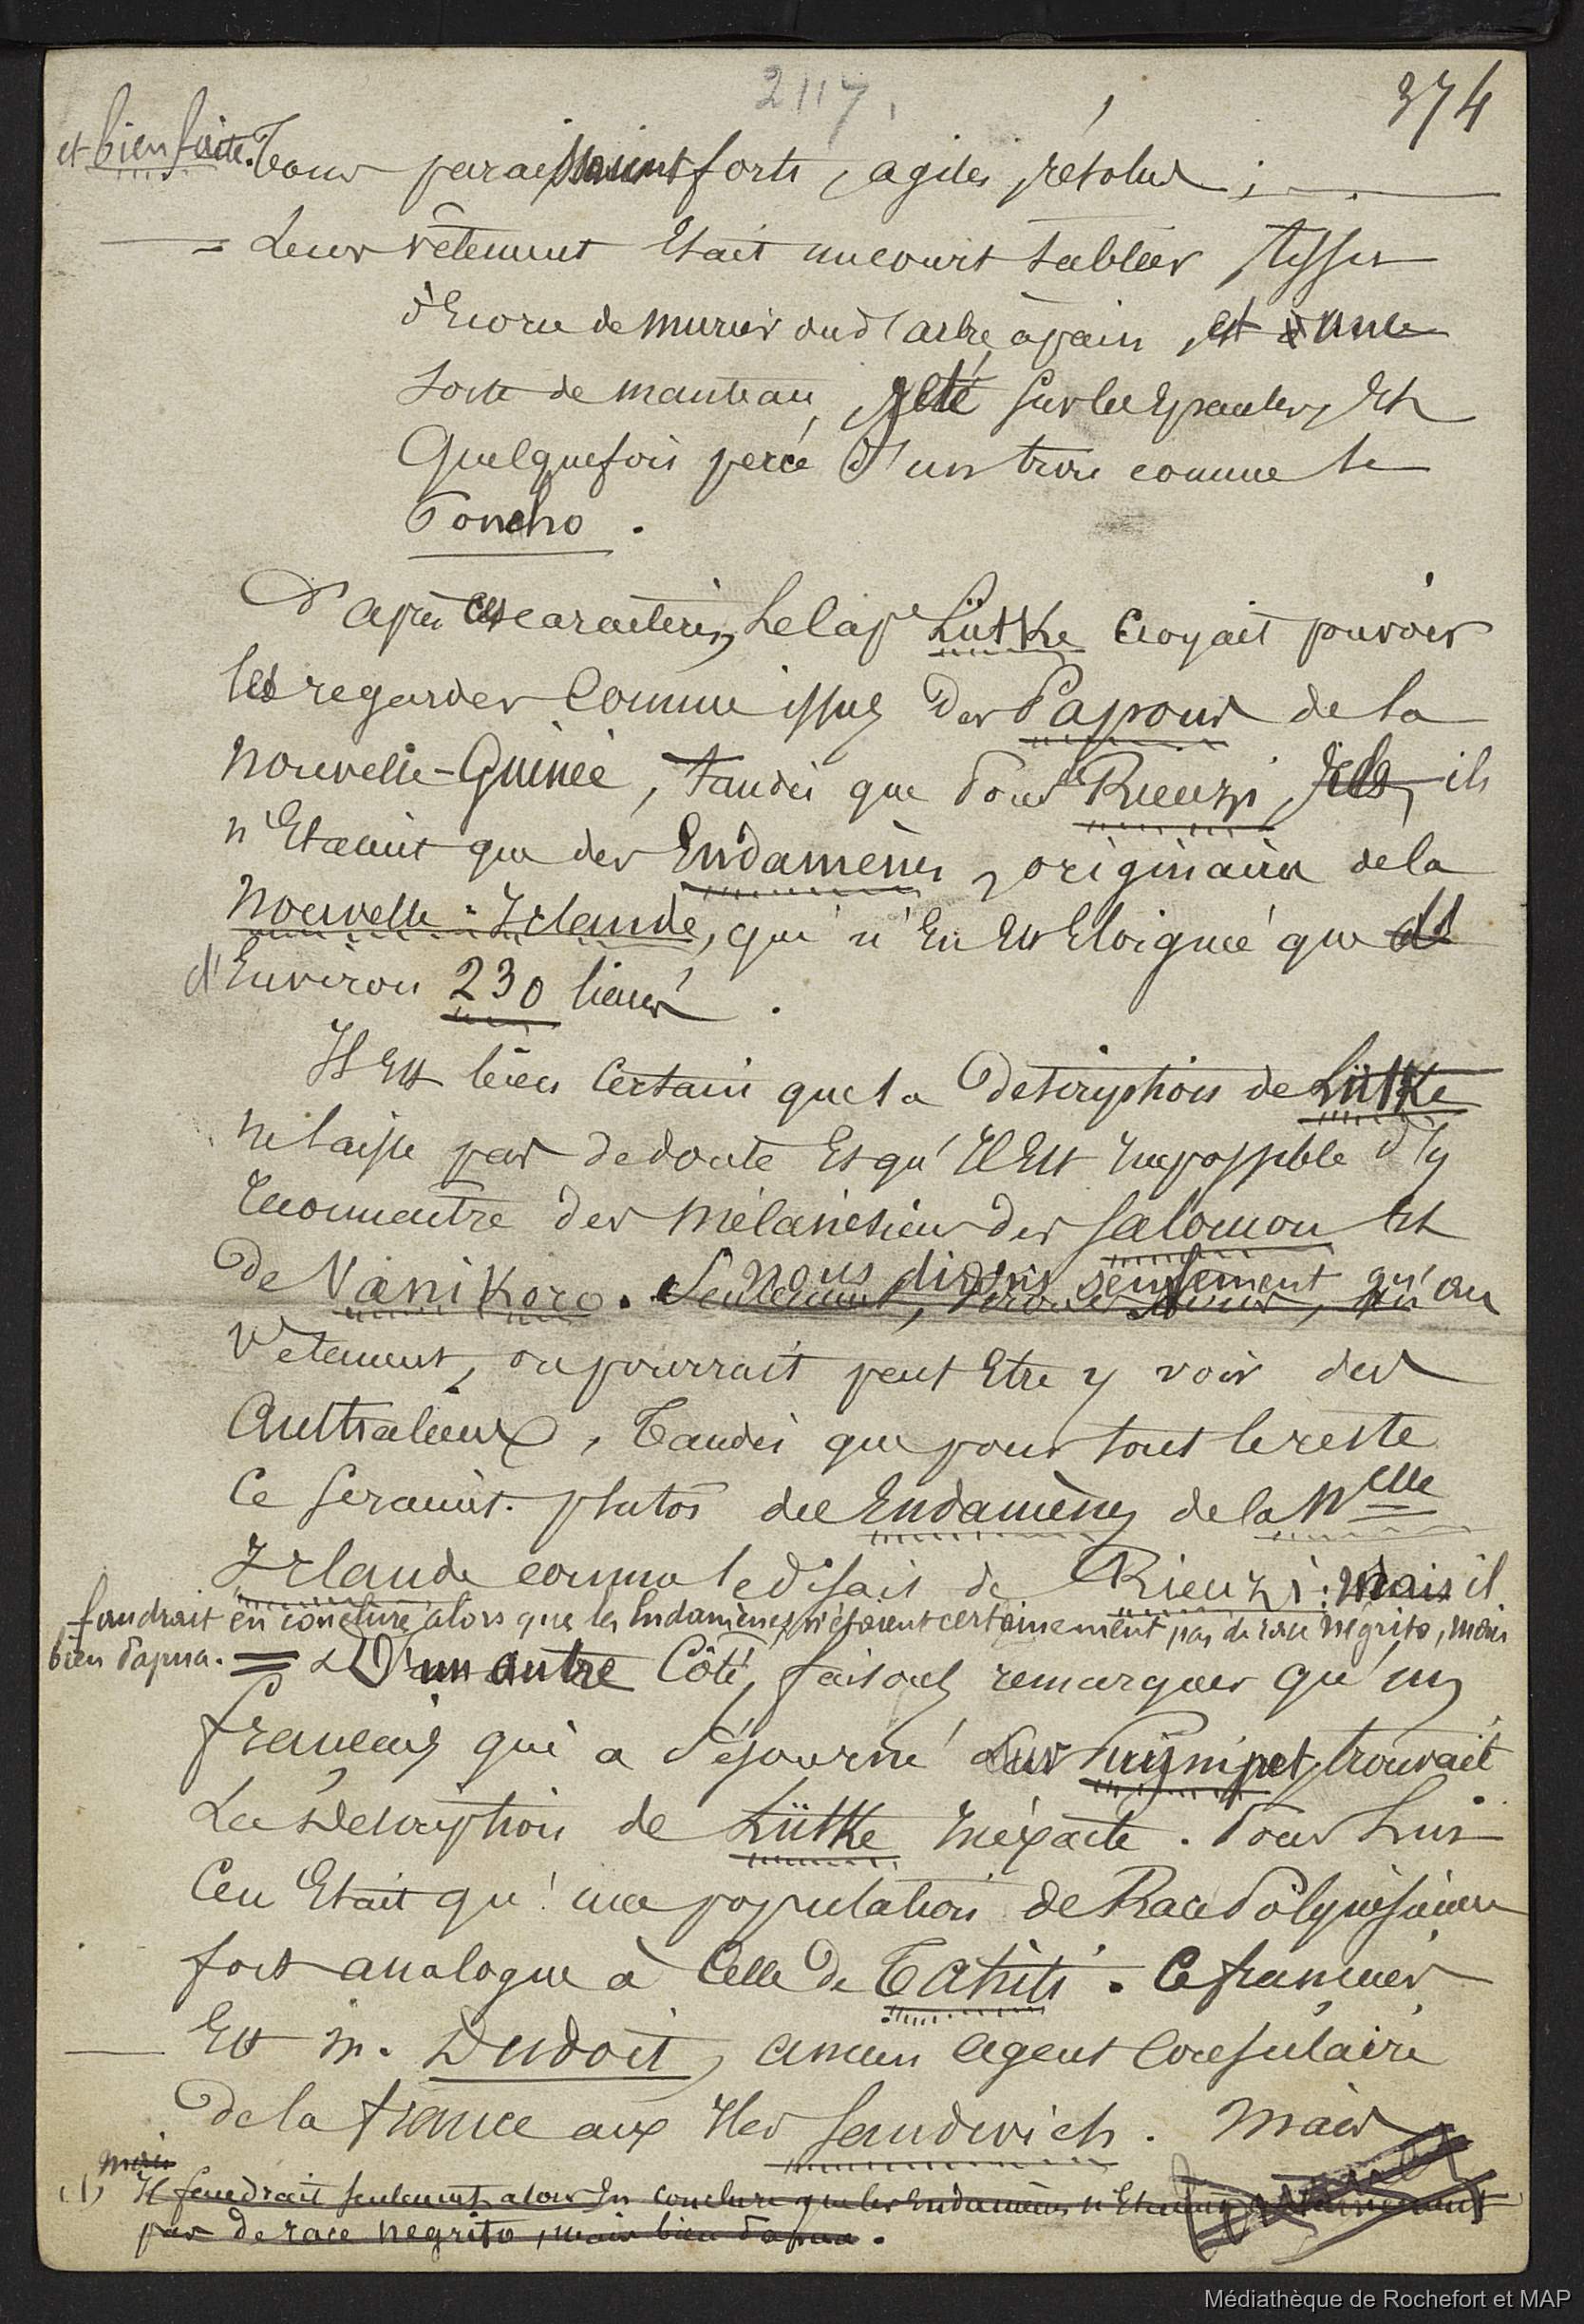 2117
374
et bien faits. Tous paraissaient forts, agiles, résolus ;
= Leur vêtement Etait un court tablier tissu
d'Ecorce de murier ou d'arbre à pain, et d'une
sorte de manteau, jeté sur les Epaules, Et
Quelquefois percé d'un trou comme le
Poncho.
D'après ces caractères, le Cap.e Lütke Croyait pouvoir
les regarder Comme issus des Papous de la
Nouvelle-Guinée, tandis que Pour Rienzi, ils
n'Etaient que des Endamènes, originaires de la
Nouvelle-Irlande, qui n'En Est Eloignée que de
d'Environ 230 lieues.
Il Est bien Certain que la Description de Lütke
ne laisse pas de doute Et qu'Il Est Impossible d'y
reconnaitre des Mélanésiens des Salomon Et
De Vanikoro. Seulement, nous dirons seulement qu'au
Vêtement, on pourrait peut Etre y voir des
Australiens, Tandis que pour tout le reste
Ce seraient plutôt des Endamènes de la Nelle
Irlande comme le disait de Rienzi : mais il
faudrait en conclure alors que les Endamènes n'étaient certainement pas de race négrito, mais
bien Papua. = D'un autre Côté, faisons remarquer qu'un
français qui a Séjourné sur Puynipet, trouvait
La Description de Lütke Inéxacte. Pour Lui
Ce n'Etait qu'une population de Race Polynésienne
fort analogue à Celle de Tahiti. Ce francais
Est M. Dudoit, ancien agent Consulaire
De la france aux Iles Sandwich. Mais
mais
(1) Il faudrait seulement alors En conclure que les Endamènes n'Etaient certainement
pas De race negrito, mais bien Papua.
Médiathèque de Rochefort et MAP